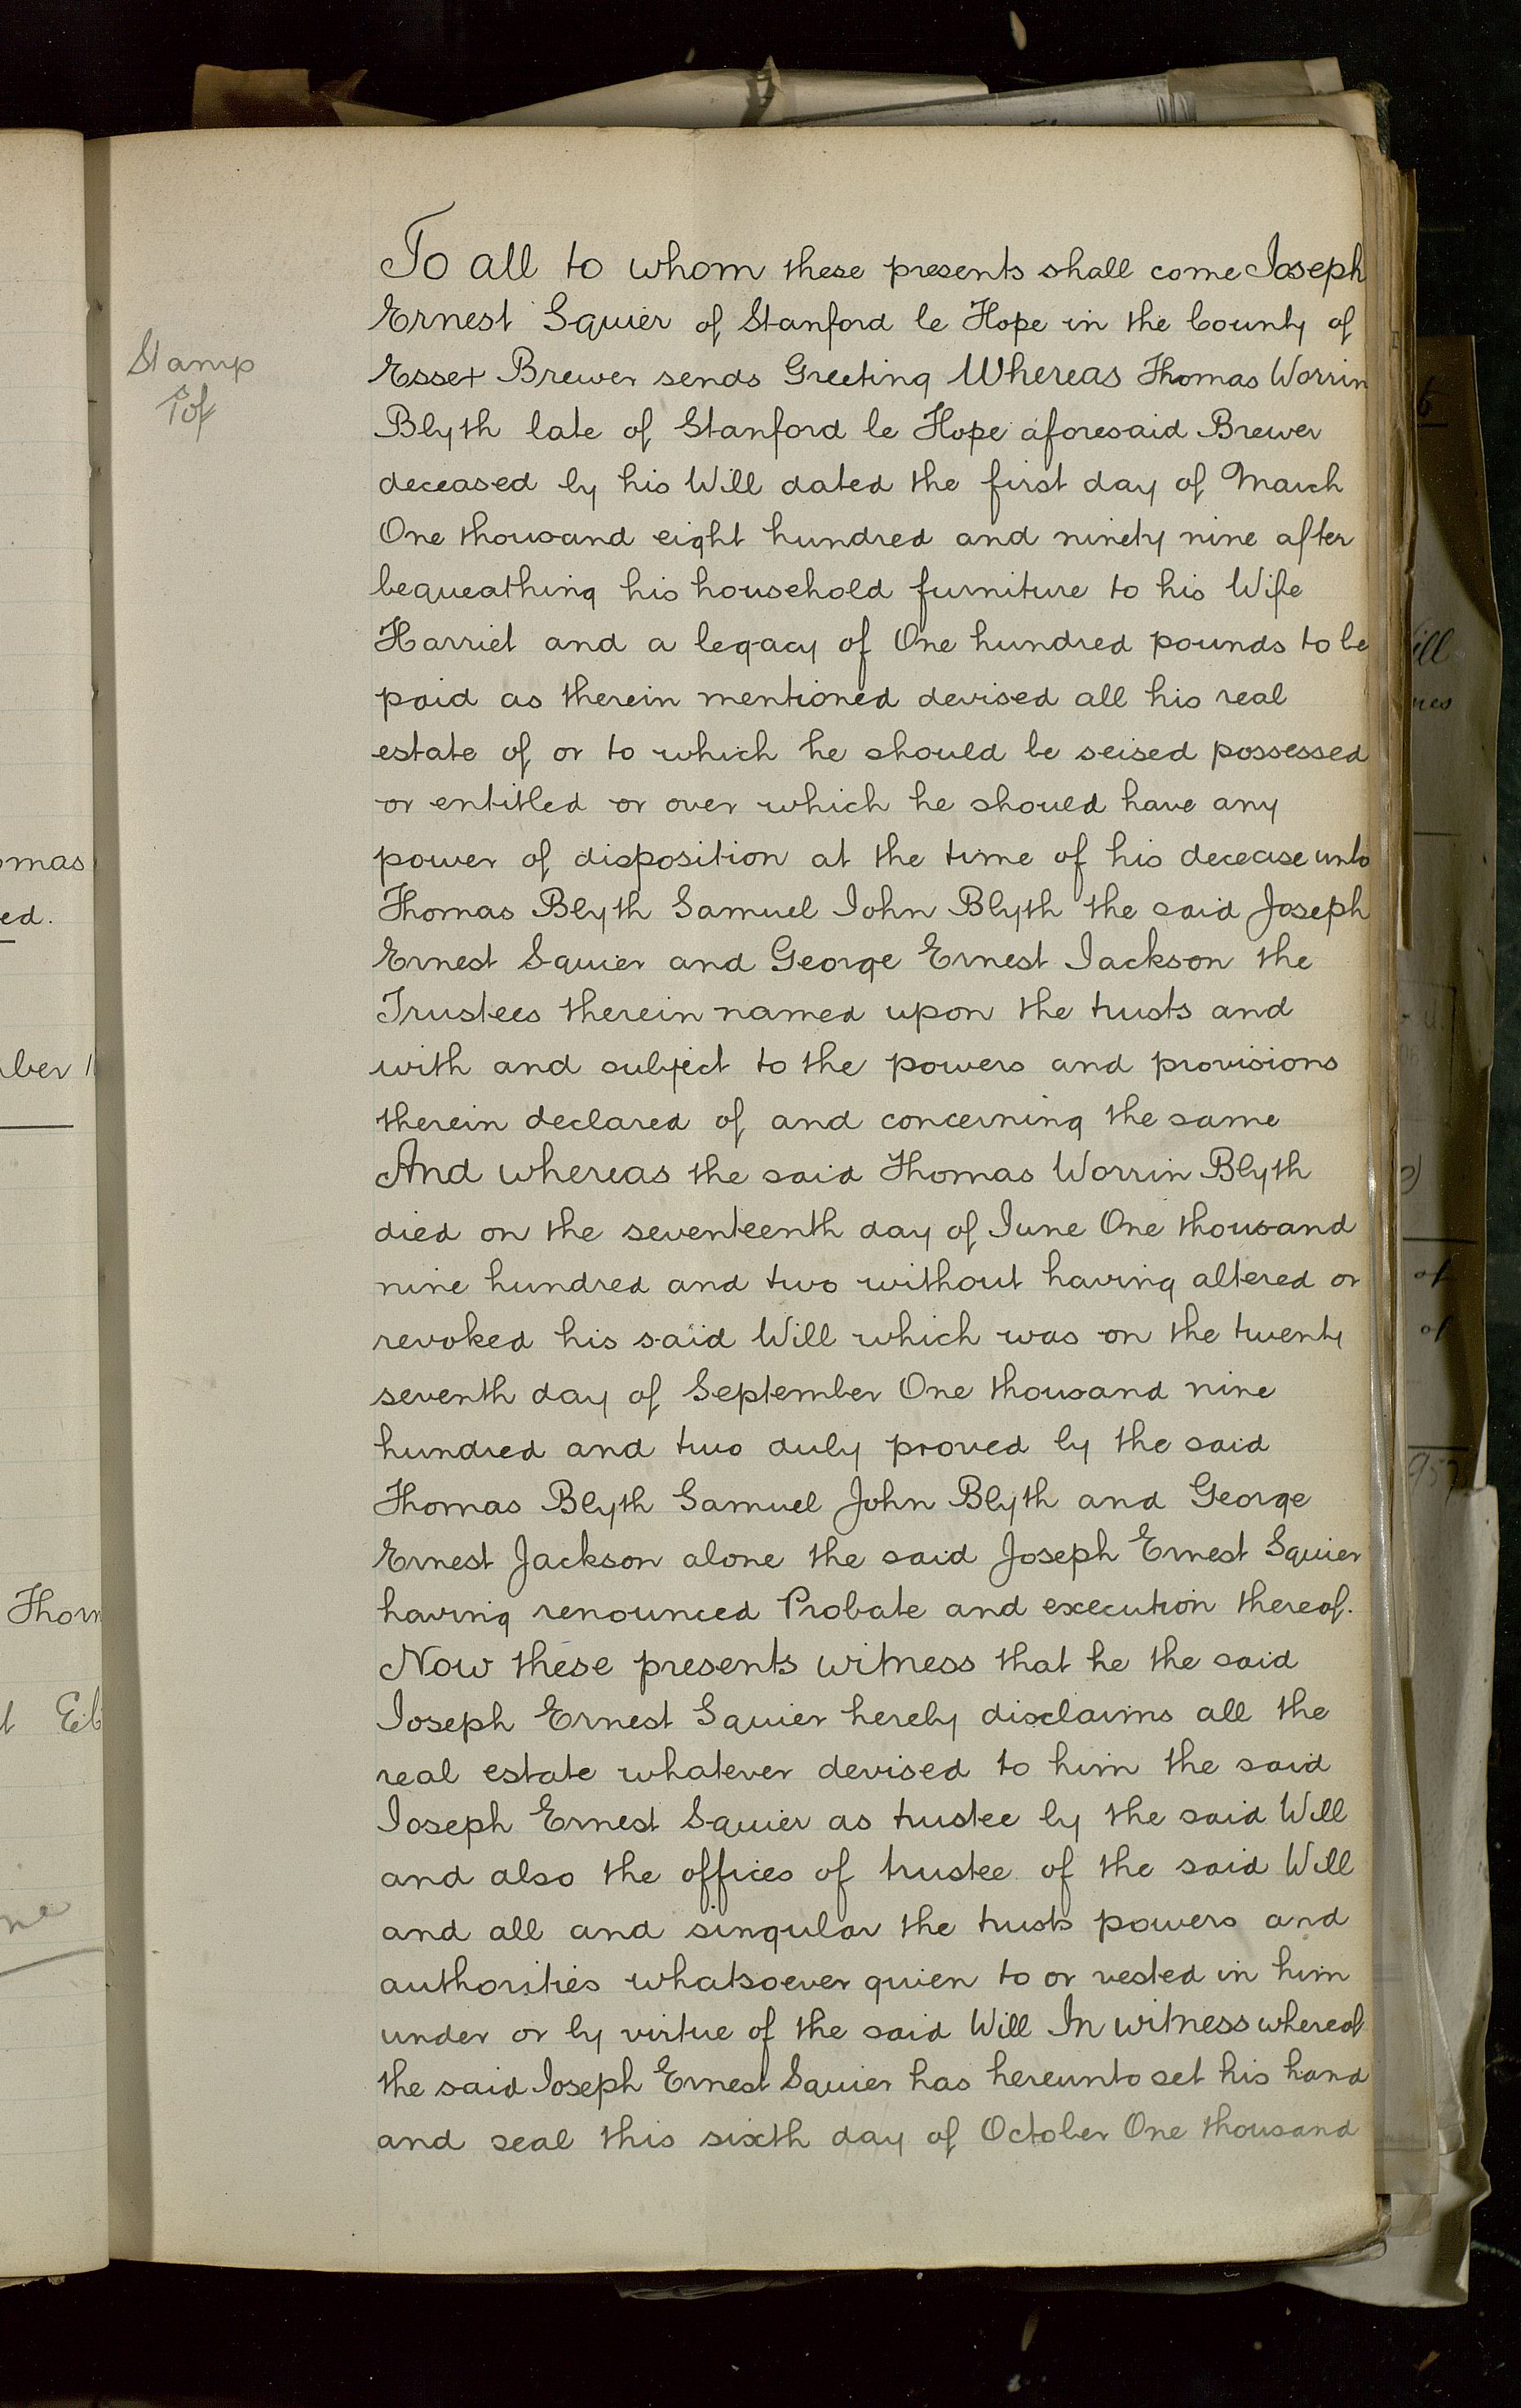 To all to whom these presents shall come Joseph
Ernest Squier of Stanford le Hope in the County of
Essex Brewer sends Greeting Whereas Thomas Worrin
Blyth late of Stanford le Hope aforesaid Brewer
deceased by his Will dated the first day of March
One thousand eight hundred and ninety nine after
bequeathing his household furniture to his Wife
Harriet and a legacy of One hundred pounds to be
paid as therein mentioned devised all his real
estate of or to which he should be seised possessed
or entitled or over which he should have any
power of disposition at the time of his decease unto
Thomas Blyth Samuel John Blyth the said Joseph
Ernest Squier and George Ernest Jackson the
Trustees therein named upon the trusts and
with and subject to the powers and provisions
therein declared of and concerning the same
And whereas the said Thomas Worrin Blyth
died on the seventeenth day of June One thousand
nine hundred and two without having altered or
revoked his said Will which was on the twenty
seventh day of September One thousand nine
hundred and two duly proved by the said
Thomas Blyth Samuel John Blyth and George
Ernest Jackson alone the said Joseph Ernest Squier
having renounced Probate and execution thereof.
Now these presents witness that he the said
Joseph Ernest Squier hereby disclaims all the
real estate whatever devised to him the said
Joseph Ernest Squier as trustee by the said Will
and also the offices of trustee of the said Will
and all and singular the trusts powers and
authorities whatsoever given to or vested in him
under or by virtue of the said Will In witness whereof
the said Joseph Ernest Squier has hereunto set his hand
and seal this sixth day of October One thousand
Stamp
omas
ed.
ber 1
Thom
of
of